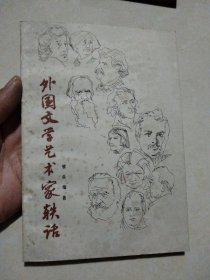 外国文学艺术家轶话